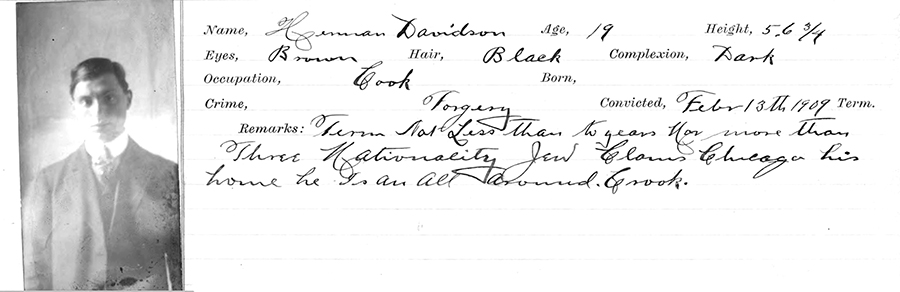 Name, Herman Davidson Age, 19 Height, 5.6 3/4
Eyes, Brown Hair, Black Complexion, Dark
Occupation, Cook Born,
Crime, Forgery Convicted, Febr 13th 1909 Term.
Remarks: Term Not Less than to years Nor more than
Three Nationality Jew Clams Chicago his
home he Is an All around. Crook.